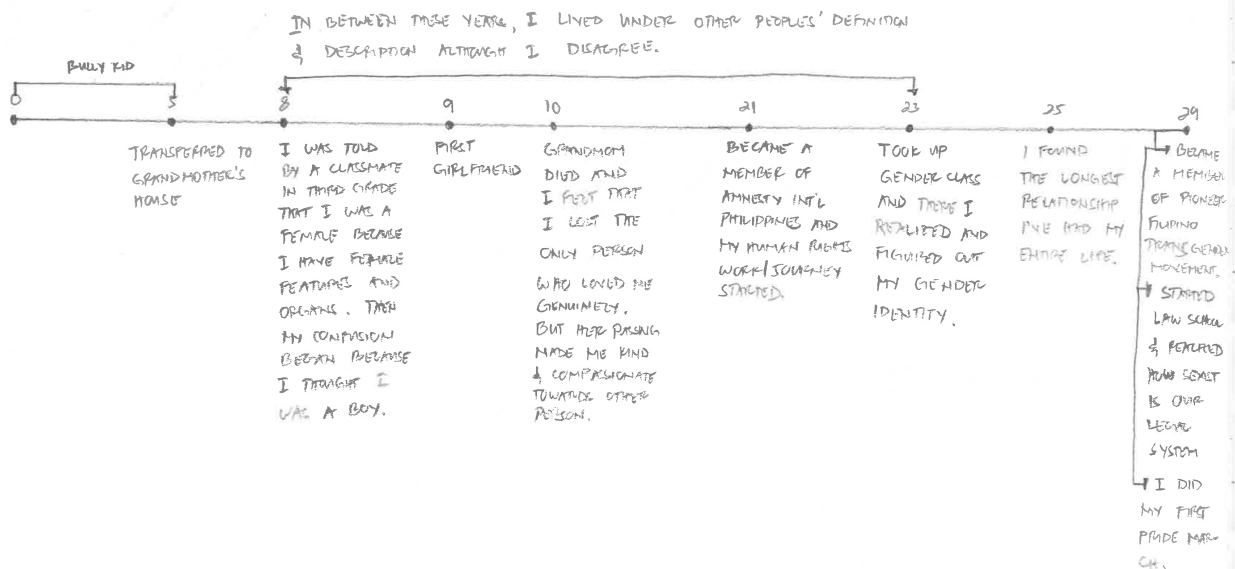 IN BETWEEN THESE YEARS, I LIVED UNDER OTHER PEOPLES' DEFINITION
& DESCRIPTION ALTHOUGH I DISAGREE.
BULLY KID
0 5 8 9 10 21 23 25 29
TRANSFERRED TO
GRANDMOTHER'S
HOUSE
I WAS TOLD
BY A CLASSMATE
IN THIRD GRADE
THAT I WAS A
FEMALE BECAUSE
I HAVE FEMALE
FEATURES AND
ORGANS. THEN
MY CONFUSION
BEGAN BECAUSE
I THOUGHT I
WAS A BOY.
FIRST
GIRLFRIEND
GRANDMOM
DIED AND
I FELT THAT
I LOST THE
ONLY PERSON
WHO LOVED ME
GENUINELY.
BUT HER PASSING
MADE ME KIND
& COMPASSIONATE
TOWARDS OTHER
PERSON.
BECAME A
MEMBER OF
AMNESTY INT'L
PHILIPPINES AND
MY HUMAN RIGHTS
WORK/JOURNEY
STARTED.
TOOK UP
GENDER CLASS
AND THERE I
REALIZED AND
FIGURED OUT
MY GENDER
IDENTITY.
I FOUND
THE LONGEST
RELATIONSHIP
I'VE HAD MY
ENTIRE LIFE.
BECAME
A MEMBER
OF PIONEER
FILIPINO
TRANSGENDER
MOVEMENT.
STARTED
LAW SCHOOL
& REALIZED
HOW SEXIST
IS OUR
LEGAL
SYSTEM
I DID
MY FIRST
PRIDE MAR-
CH.